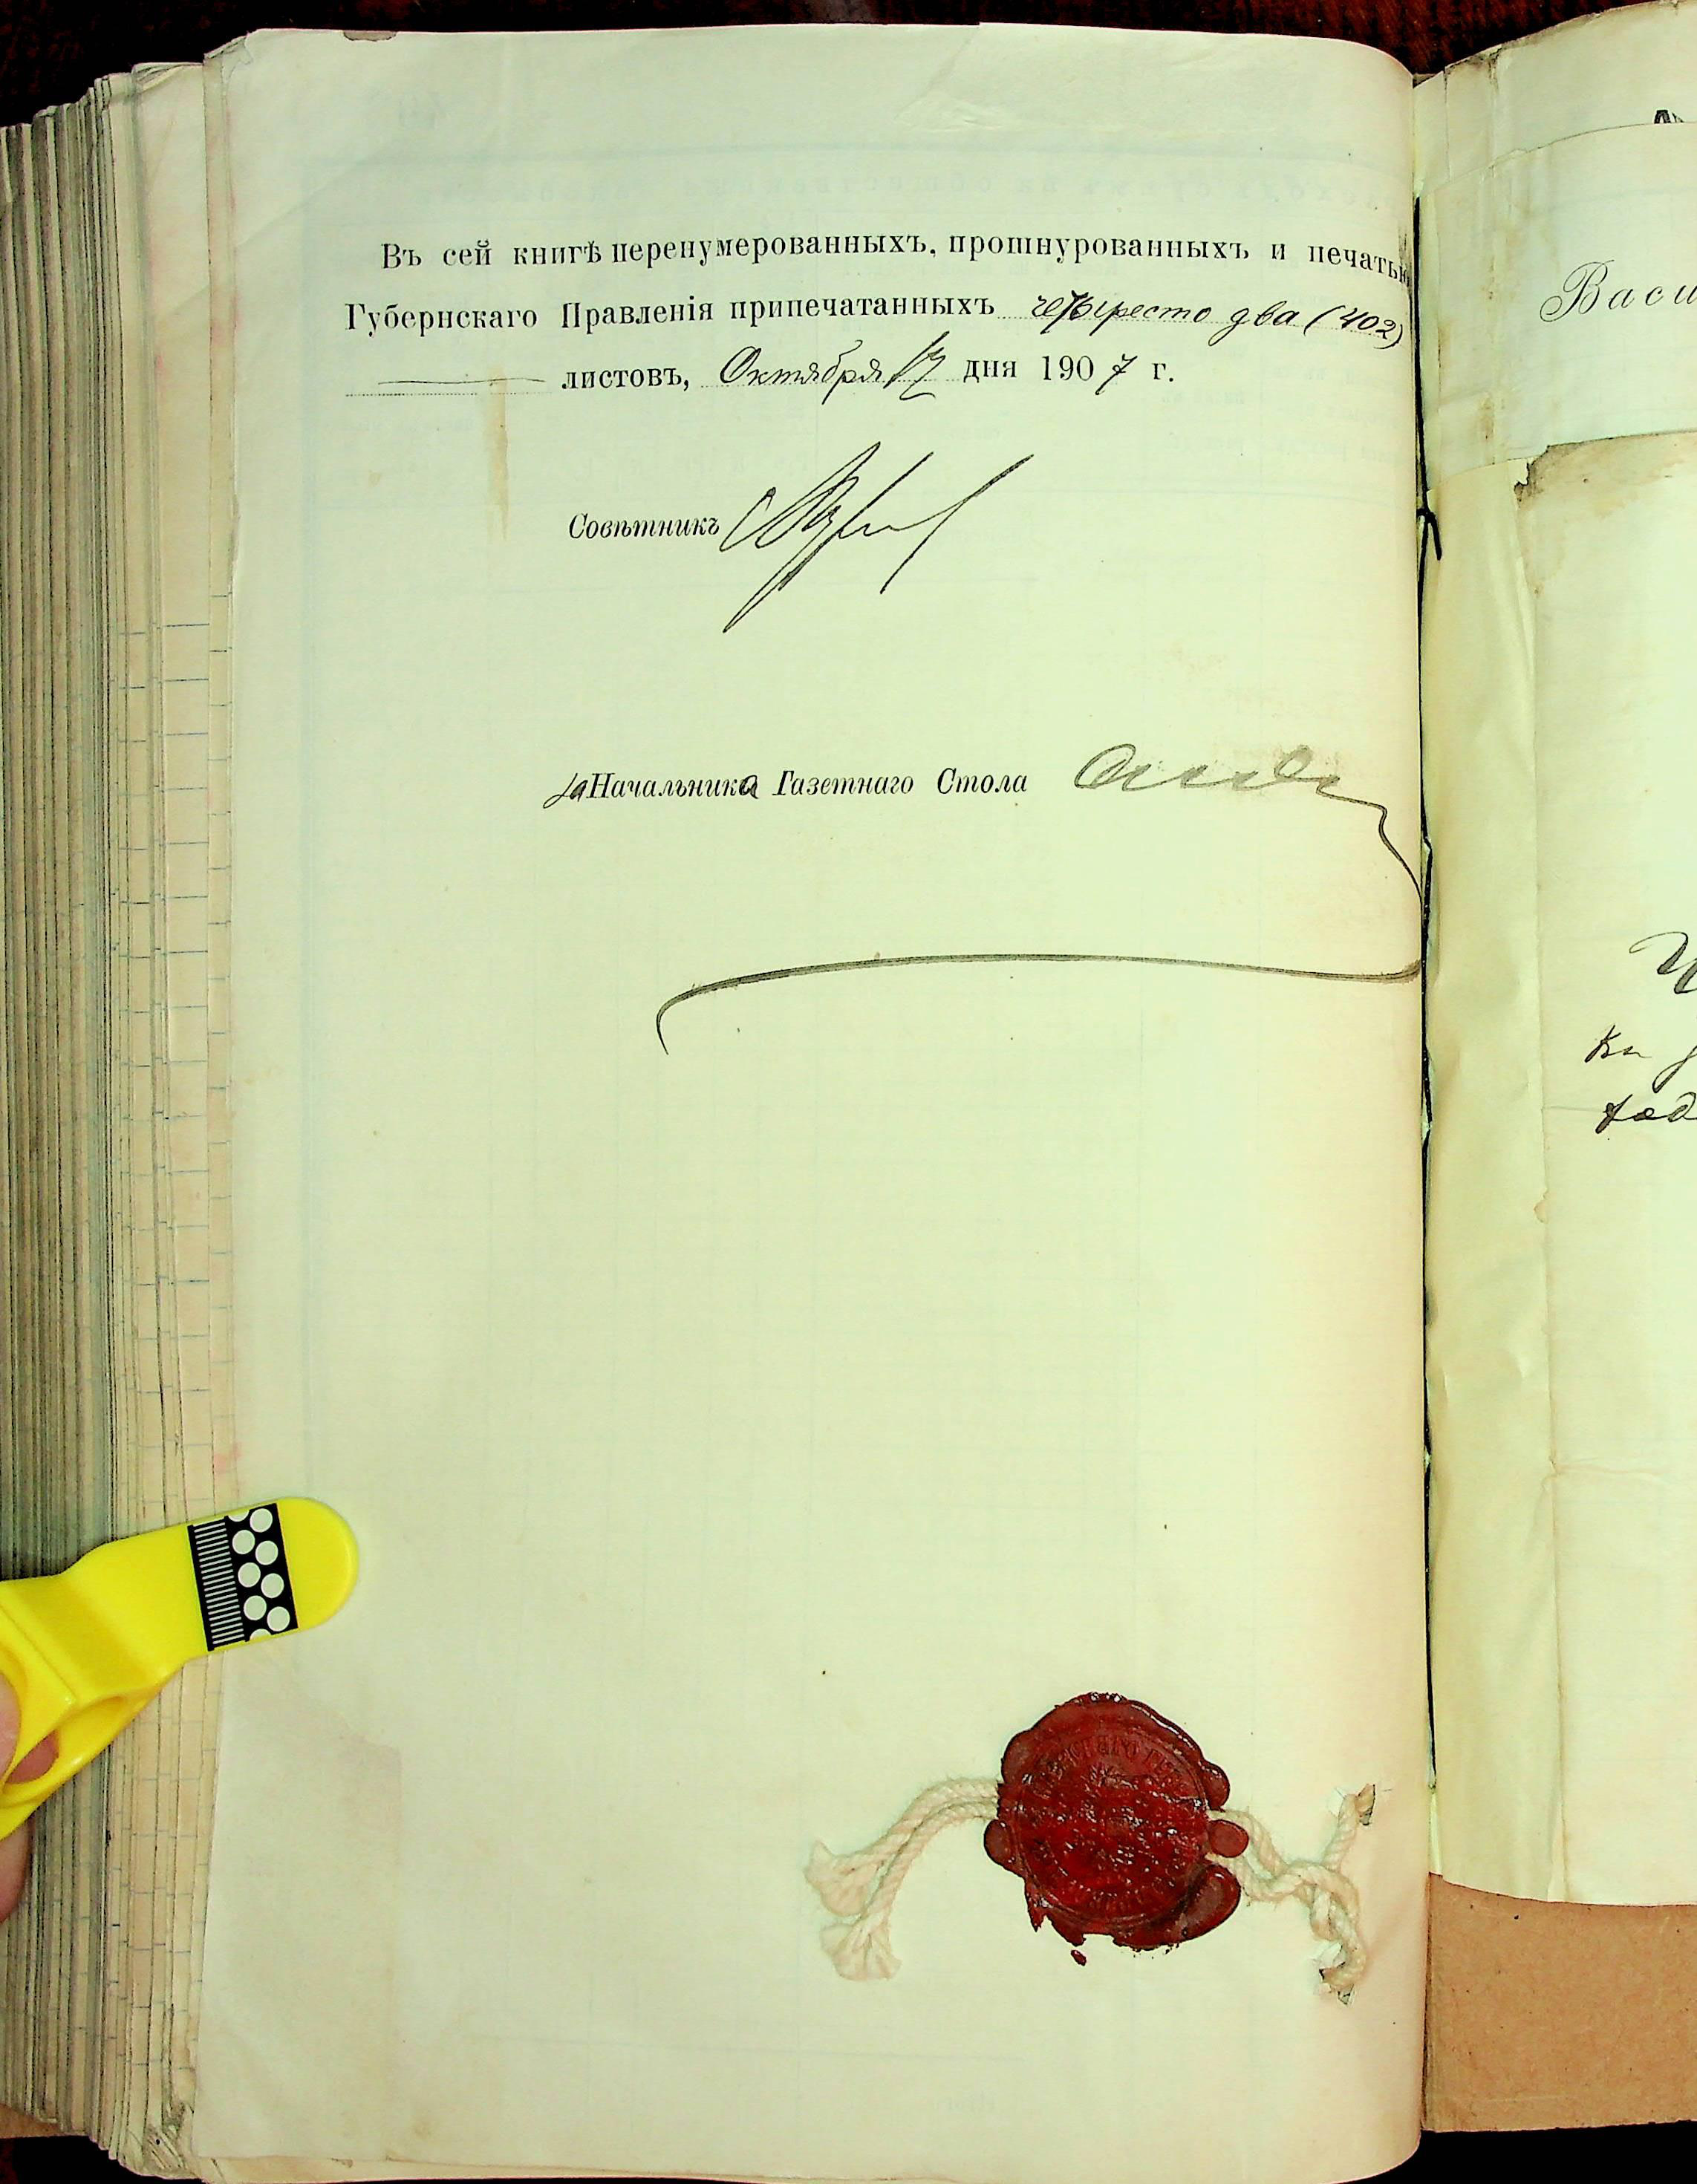 Въ сей книгѣ перенумерованныхъ, прошнурованныхъ и печатью
Губернскаго Правленія припечатанныхъ четыреста два (402)
листовъ, Октября 17 дня 1907 г.
Совѣтникъ
За Начальника Газетнаго Стола
Васи